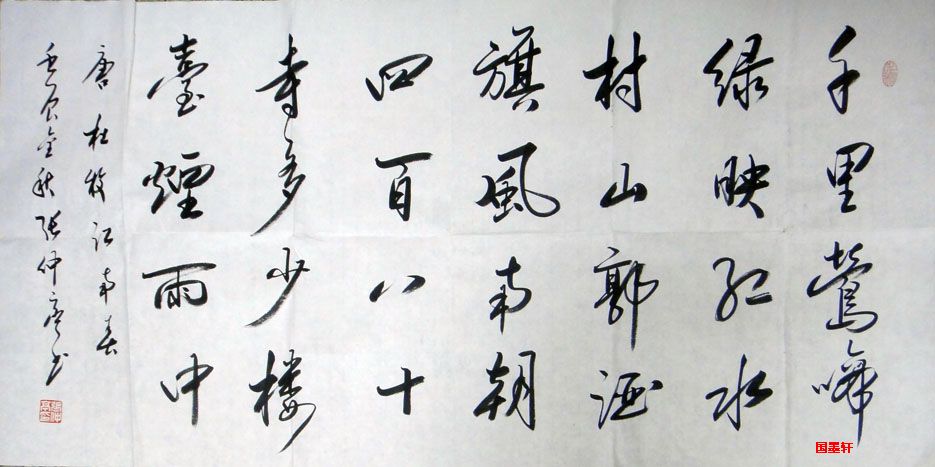 千里鶯啼
绿映红水
村山郭酒
旗風南朝
四百八十
寺多少楼
臺煙雨中
唐杜牧江南春
壬辰金秋张仲书
国墨轩